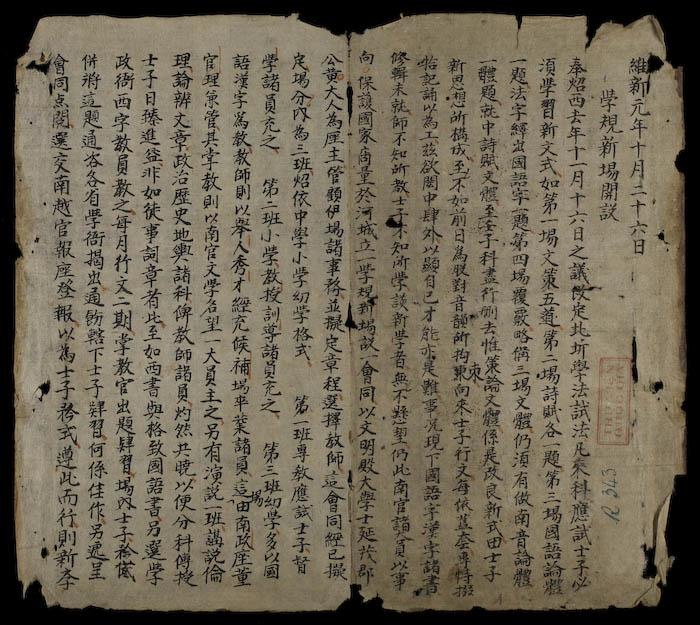 維新元年十月二十六日
學規新場開說
奉炤西去年十一月十六日之議改定北圻學法試法凡乘科應試士子必
須學習新文式如第一場文策五道第二場詩賦各一題第三場國語論體
一題法字繹出國語字一題第四場覆覈略備三場文體仍須有做南音論體
一體題就中詩賦文體至後子科盡行刪去惟策論文體係是改良新式由士子
新思想所構成至不如前日為股對音韻所拘束向來士子行文每依蓋套專特掇
怡記誦以為工茲欲閎中肆外以顯自己才能亦是難事况現下國語字漢字諸書
修輯未就師不知所教士子不知所學談新學者無不懸望仍此南官諸員以事
向保護國家商量於河城立一學規新場說一會同以文明殿大學士延茂郡
公黃大人為座主管顧伊場諸事務並擬定章程選擇教師這會同經已擬
定場分內為三班炤依中學小學幼學格式 第一班專教應試士子督
學諸員充之 第二班小學教授訓導諸員充之 第三班幼學場多以國
語漢字為教教師則以舉人秀才經充候補場卒業諸員這由南政座董
官理兼管其掌教則以南官文學名望一大員主之另有演說一班講說倫
理論辨文章政治歷史地輿諸科俾教師諸員灼然共曉以便分科傳授
士子日臻進益非如徒事詞章者比至如西書與格致國語書另選學
政衙西字教員教之每月行文二期掌教官出題肄習場內士子於儀
併將這題通咨各省學衙揭出通飭轄下士子肄習何係佳作另遞呈
會同点閱選交南越官報座登報以為士子矜式遵此而行則新學
R 343